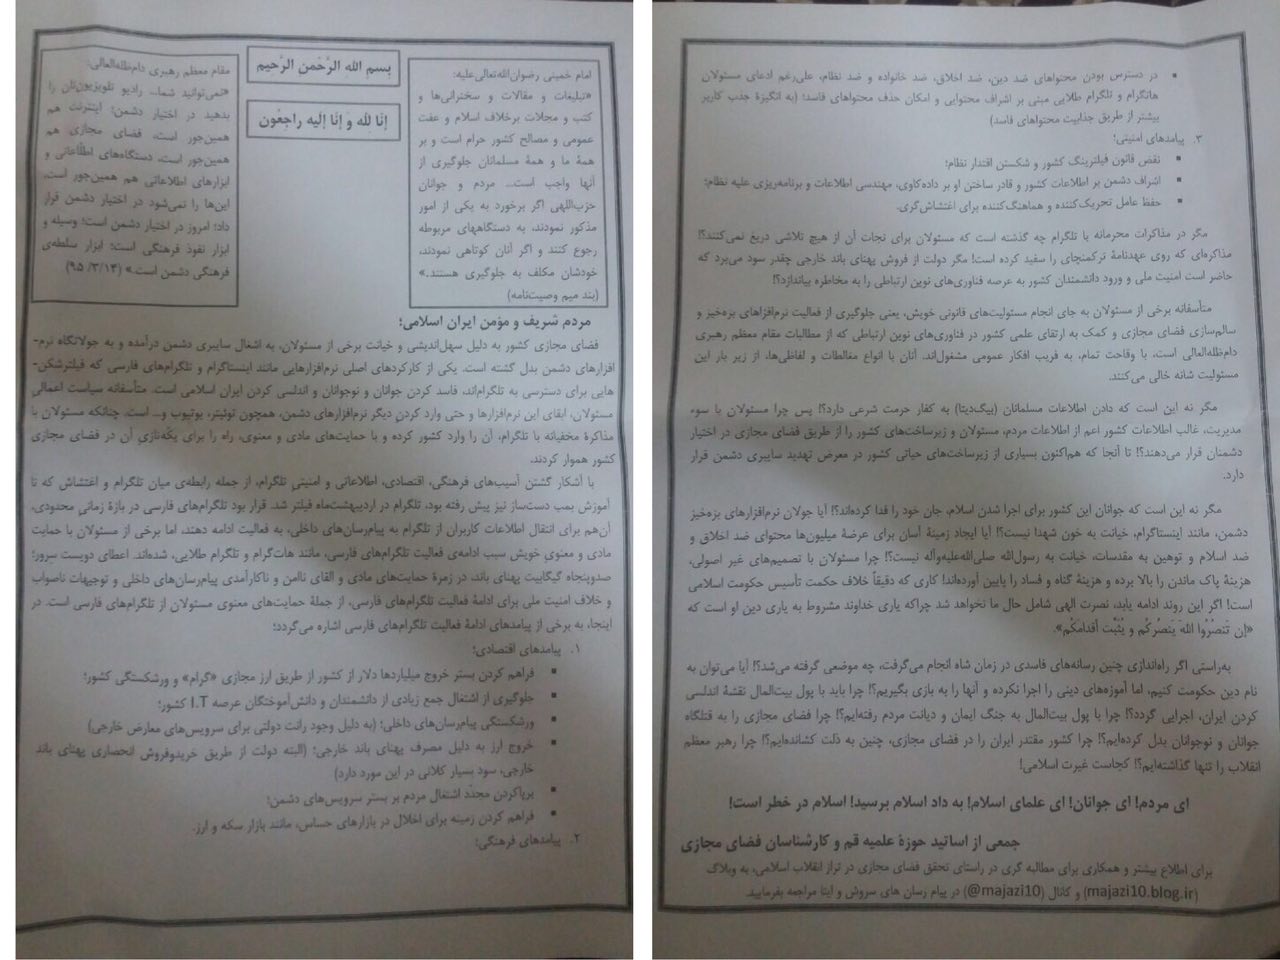 بِسمِ اللهِ الرَّحْمنِ الرَّحیم
إنّا لِلّه و إنّا إلیه راجعُون
امام خمینی رضوان‌الله‌تعالی‌علیه:
«تبلیغات و مقالات و سخنرانی‌ها و
کتب و مجلات برخلاف اسلام و عفت
عمومی و مصالح کشور حرام است و بر
همهٔ ما و همهٔ مسلمانان جلوگیری از
آنها واجب است... مردم و جوانان
حزب‌اللهی اگر برخورد به یکی از امور
مذکور نمودند، به دستگاههای مربوطه
رجوع کنند و اگر آنان کوتاهی نمودند،
خودشان مکلف به جلوگیری هستند.»
(بند میم وصیت‌نامه)
مقام معظم رهبری دام‌ظله‌العالی:
«نمی‌توانید شما... رادیو تلویزیون‌تان را
بدهید در اختیار دشمن؛ اینترنت هم
همین‌جور است، فضای مجازی هم
همین‌جور است، دستگاه‌های اطلّاعاتی و
ابزارهای اطلاعاتی هم همین‌جور است،
این‌ها را نمی‌شود در اختیار دشمن قرار
داد؛ امروز در اختیار دشمن است؛ وسیله و
ابزار نفوذ فرهنگی است؛ ابزار سلطه‌ی
فرهنگی دشمن است.» (۹۵/۳/۱۴)
مردم شریف و مؤمن ایران اسلامی؛
فضای مجازی کشور به دلیل سهل‌اندیشی و خیانت برخی از مسئولان، به اشغال سایبری دشمن درآمده و به جولانگاه نرم-
افزارهای دشمن بدل گشته است. یکی از کارکردهای اصلی نرم‌افزارهایی مانند اینستاگرام و تلگرام‌های فارسی که فیلترشکن-
هایی برای دسترسی به تلگرام‌اند، فاسد کردن جوانان و نوجوانان و اندلسی کردن ایران اسلامی است. متأسفانه سیاست اعمالی
مسئولان، ابقای این نرم‌افزارها و حتی وارد کردن دیگر نرم‌افزارهای دشمن، همچون توئیتر، یوتیوب و... است. چنانکه مسئولان با
مذاکرهٔ مخفیانه با تلگرام، آن را وارد کشور کرده و با حمایت‌های مادی و معنوی، راه را برای یکّه‌تازیِ آن در فضای مجازی
کشور هموار کردند.
با آشکار گشتن آسیب‌های فرهنگی، اقتصادی، اطلاعاتی و امنیتی تلگرام، از جمله رابطه‌ی میان تلگرام و اغتشاش که تا
آموزش بمب دست‌ساز نیز پیش رفته بود، تلگرام در اردیبهشت‌ماه فیلتر شد. قرار بود تلگرام‌های فارسی در بازهٔ زمانیِ محدودی،
آن‌هم برای انتقال اطلاعات کاربران از تلگرام به پیام‌رسان‌های داخلی، به فعالیت ادامه دهند، اما برخی از مسئولان با حمایت
مادی و معنویِ خویش سبب ادامه‌ی فعالیت تلگرام‌های فارسی، مانند هات‌گرام و تلگرام طلایی، شده‌اند. اعطای دویست سرور؛
صدوپنجاه گیگابیت پهنای باند، در زمرهٔ حمایت‌های مادی و القای ناامن و ناکارآمدی پیام‌رسان‌های داخلی و توجیهات ناصواب
و خلاف امنیت ملی برای ادامهٔ فعالیت تلگرام‌های فارسی، از جملهٔ حمایت‌های معنوی مسئولان از تلگرام‌های فارسی است. در
اینجا، به برخی از پیامدهای ادامهٔ فعالیت تلگرام‌های فارسی اشاره می‌گردد؛
۱. پیامدهای اقتصادی؛
▪ فراهم کردن بستر خروج میلیاردها دلار از کشور از طریق ارز مجازی «گرام» و ورشکستگی کشور؛
▪ جلوگیری از اشتغال جمع زیادی از دانشمندان و دانش‌آموختگان عرصه I.T کشور؛
▪ ورشکستگی پیام‌رسان‌های داخلی؛ (به دلیل وجود رانت دولتی برای سرویس‌های معارض خارجی)
▪ خروج ارز به دلیل مصرف پهنای باند خارجی؛ (البته دولت از طریق خریدوفروش انحصاری پهنای باند
خارجی، سود بسیار کلانی در این مورد دارد)
▪ برپاکردن مجدّد اشتغال مردم بر بستر سرویس‌های دشمن؛
▪ فراهم کردن زمینه برای اخلال در بازارهای حساس، مانند بازار سکه و ارز.
۲. پیامدهای فرهنگی؛
▪ در دسترس بودن محتواهای ضد دین، ضد اخلاق، ضد خانواده و ضد نظام، علی‌رغم ادعای مسئولان
هاتگرام و تلگرام طلایی مبنی بر اشراف محتوایی و امکان حذف محتواهای فاسد؛ (به انگیزهٔ جذب کاربر
بیشتر از طریق جذابیت محتواهای فاسد)
۳. پیامدهای امنیتی؛
▪ نقض قانون فیلترینگ کشور و شکستن اقتدار نظام؛
▪ اشراف دشمن بر اطلاعات کشور و قادر ساختن او بر داده‌کاوی، مهندسی اطلاعات و برنامه‌ریزی علیه نظام؛
▪ حفظ عامل تحریک‌کننده و هماهنگ‌کننده برای اغتشاش‌گری.
مگر در مذاکرات محرمانه با تلگرام چه گذشته است که مسئولان برای نجات آن از هیچ تلاشی دریغ نمی‌کنند؟!
مذاکره‌ای که روی عهدنامهٔ ترکمنچای را سفید کرده است! مگر دولت از فروش پهنای باند خارجی چقدر سود می‌برد که
حاضر است امنیت ملی و ورود دانشمندان کشور به عرصه فناوری‌های نوین ارتباطی را به مخاطره بیاندازد؟!
متأسفانه برخی از مسئولان به جای انجام مسئولیت‌های قانونی خویش، یعنی جلوگیری از فعالیت نرم‌افزارهای بزه‌خیز و
سالم‌سازی فضای مجازی و کمک به ارتقای علمی کشور در فناوری‌های نوین ارتباطی که از مطالبات مقام معظم رهبری
دام‌ظله‌العالی است، با وقاحت تمام، به فریب افکار عمومی مشغول‌اند. آنان با انواع مغالطات و لفاظی‌ها، از زیر بار این
مسئولیت شانه خالی می‌کنند.
مگر نه این است که دادن اطلاعات مسلمانان (بیگ‌دیتا) به کفار حرمت شرعی دارد؟! پس چرا مسئولان با سوء
مدیریت، غالب اطلاعات کشور اعم از اطلاعات مردم، مسئولان و زیرساخت‌های کشور را از طریق فضای مجازی در اختیار
دشمنان قرار می‌دهند؟! تا آنجا که هم‌اکنون بسیاری از زیرساخت‌های حیاتی کشور در معرض تهدید سایبری دشمن قرار
دارد.
مگر نه این است که جوانان این کشور برای اجرا شدن اسلام، جان خود را فدا کرده‌اند؟! آیا جولان نرم‌افزارهای بزه‌خیز
دشمن، مانند اینستاگرام، خیانت به خون شهدا نیست؟! آیا ایجاد زمینهٔ آسان برای عرضهٔ میلیون‌ها محتوای ضد اخلاق و
ضد اسلام و توهین به مقدسات، خیانت به رسول‌الله صلی‌الله‌علیه‌وآله نیست؟! چرا مسئولان با تصمیم‌های غیر اصولی،
هزینهٔ پاک ماندن را بالا برده و هزینهٔ گناه و فساد را پایین آورده‌اند! کاری که دقیقاً خلاف حکمت تأسیس حکومت اسلامی
است! اگر این روند ادامه یابد، نصرت الهی شامل حال ما نخواهد شد چراکه یاری خداوند مشروط به یاری دین او است که
«إِن تَنصُرُوا اللهَ یَنصُرکُم و یُثَبِّت أقدامَکُم».
به‌راستی اگر راه‌اندازی چنین رسانه‌های فاسدی در زمان شاه انجام می‌گرفت، چه موضعی گرفته می‌شد؟! آیا می‌توان به
نام دین حکومت کنیم، اما آموزه‌های دینی را اجرا نکرده و آنها را به بازی بگیریم؟! چرا باید با پول بیت‌المال نقشهٔ اندلسی
کردن ایران، اجرایی گردد؟! چرا با پول بیت‌المال به جنگ ایمان و دیانت مردم رفته‌ایم؟! چرا فضای مجازی را به قتلگاه
جوانان و نوجوانان بدل کرده‌ایم؟! چرا کشور مقتدر ایران را در فضای مجازی، چنین به ذلت کشانده‌ایم؟! چرا رهبر معظم
انقلاب را تنها گذاشته‌ایم؟! کجاست غیرت اسلامی!
ای مردم! ای جوانان! ای علمای اسلام! به داد اسلام برسید! اسلام در خطر است!
جمعی از اساتید حوزهٔ علمیه قم و کارشناسان فضای مجازی
برای اطلاع بیشتر و همکاری برای مطالبه گری در راستای تحقق فضای مجازی در تراز انقلاب اسلامی، به وبلاگ
(majazi10.blog.ir) و کانال (@majazi10) در پیام رسان های سروش و ایتا مراجعه بفرمایید.